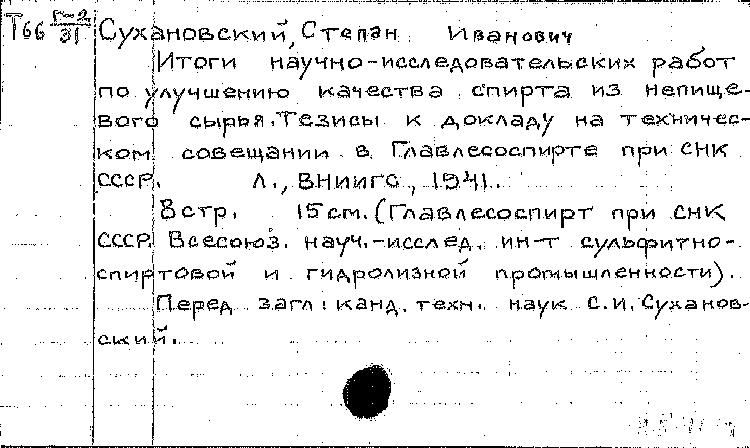 Т66 Г-2/31 Сухановский, Степан Иванович
Итоги научно-исследовательских работ
по улучшению качества спирта из непище-
вого сырья. Тезисы к докладу на техничес-
ком совещании в Главлесоспирте при СНК
СССР. Л., ВНИИГС, 1941.
8 стр. 15 см. (Главлесоспирт при СНК
СССР. Всесоюз. науч.-исслед. ин-т сульфитно-
спиртовой и гидролизной промышленности).
Перед загл: канд. техн. наук С.И. Суханов-
ский.